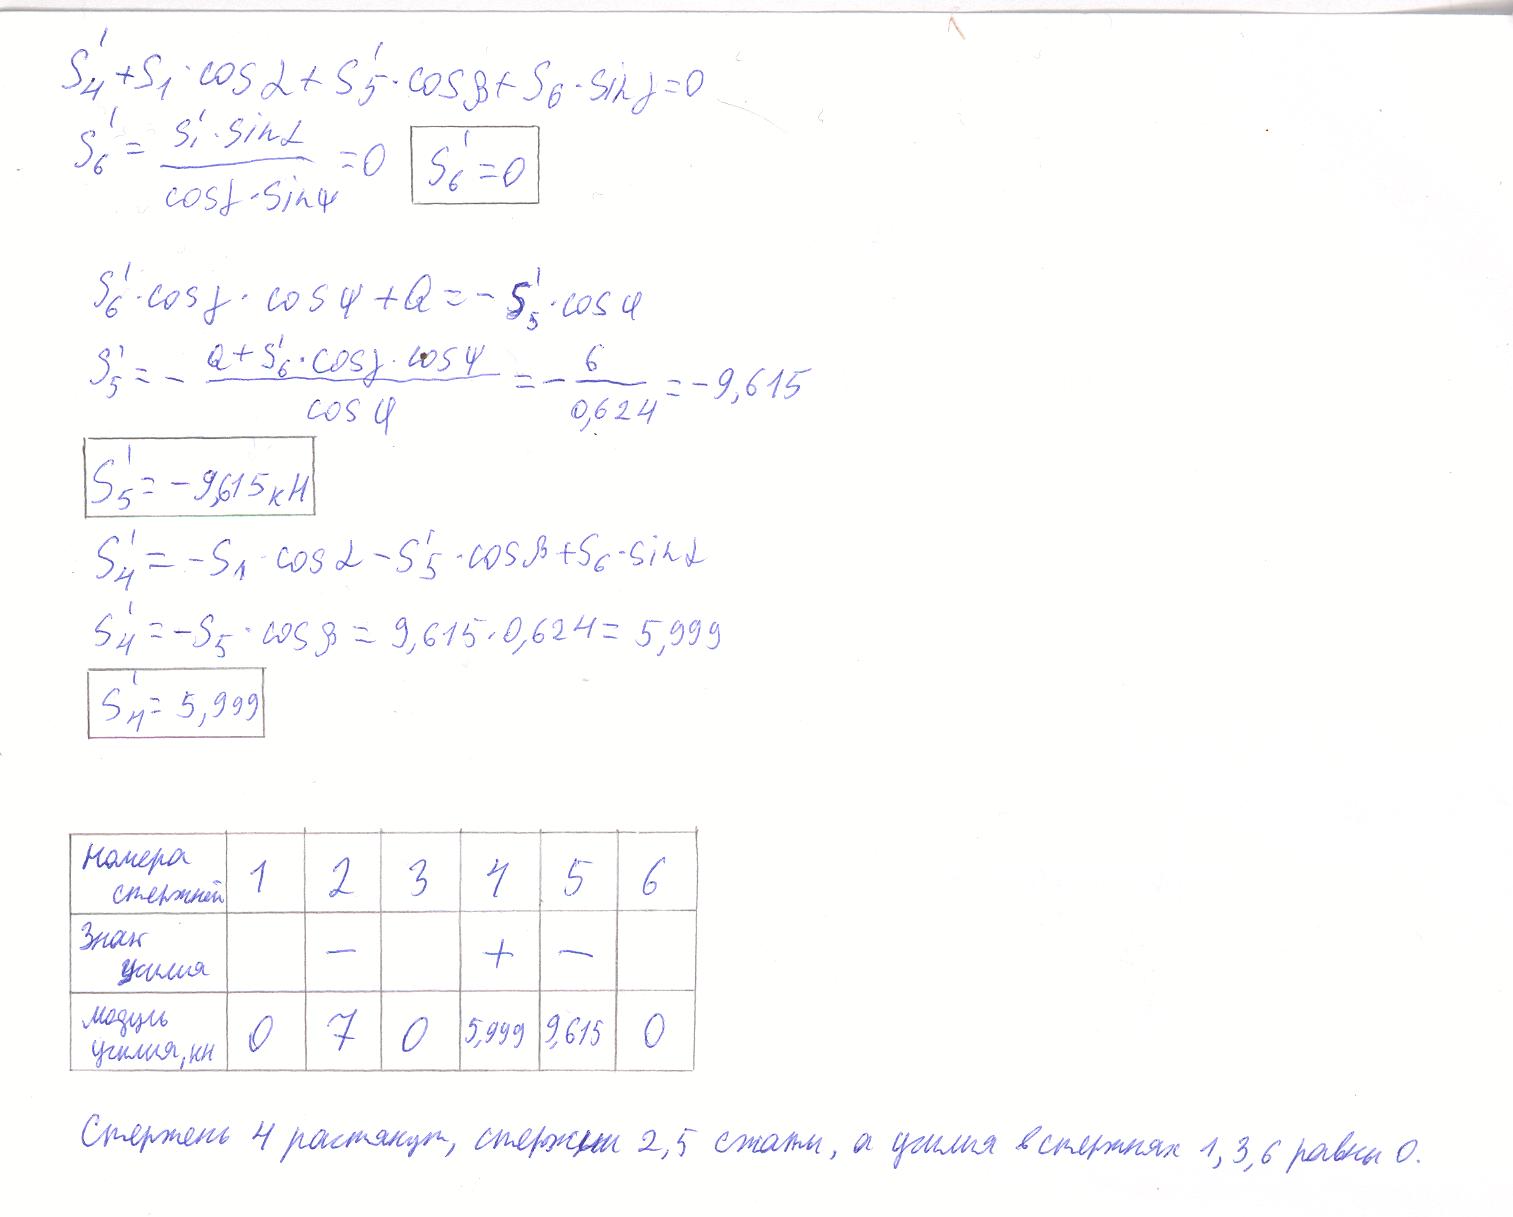 S₄' + S₁ · cos α + S₅' · cos β + S₆ · sin γ = 0
S₆' = (S₁' · sin α) / (cos γ · sin ψ) = 0   S₆' = 0
S₆' · cos γ · cos ψ + Q = − S₅' · cos φ
S₅' = − (Q + S₆' · cos γ · cos ψ) / (cos φ) = − 6 / 0,624 = −9,615
S₅' = −9,615 кН
S₄' = −S₁ · cos α − S₅' · cos β + S₆ · sin α
S₄' = −S₅ · cos β = 9,615 · 0,624 = 5,999
S₄' = 5,999
Номера стержней 1 2 3 4 5 6
Знак усилия − + −
Модуль усилия, кн 0 7 0 5,999 9,615 0
Стержень 4 растянут, стержни 2,5 сжаты, а усилия в стержнях 1, 3, 6 равны 0.